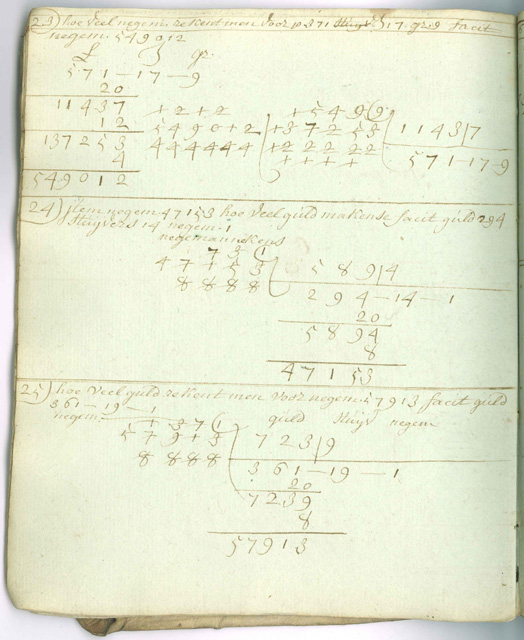 23) hoe veel negem. rekent men voor 571 Stuyv 17 gr 9 facit
negem. 549012
£ ß gr.
571—17—9
20
11437 +2+2 +5496(2
12 549012 137253 11437
137253 444444 +2222 571-17-9
4 ++++
549012
24) Item negem 47153 hoe veel guld maken se facit guld 294
Stuyvers 14 negem. 1
negemannekens
731
47153 5894
8888 294—14—1
20
5894
8
47153
25) hoe veel guld rekent men voor negem 57913 facit guld
361—19—1
negem. 1371 guld Stuyv negem
57913 7239
8888 361—19—1
20
7239
8
57913